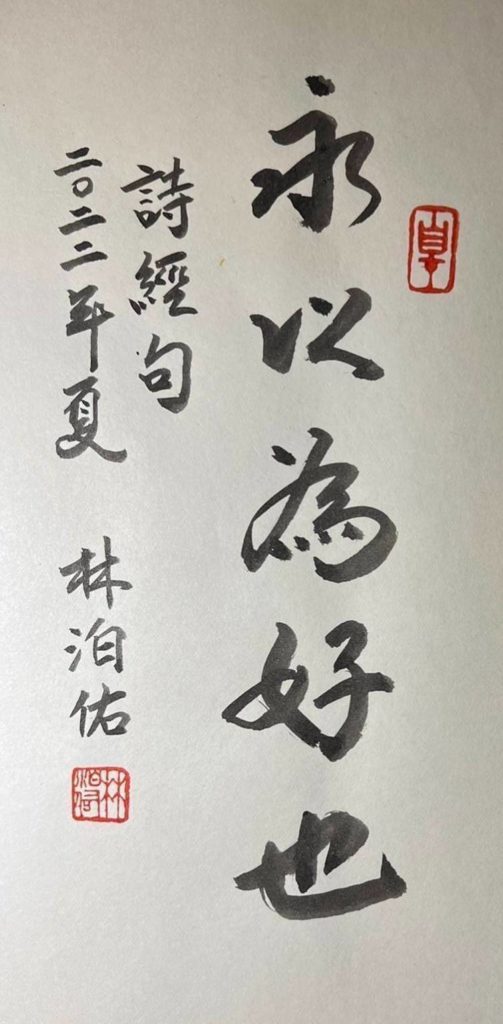 永以為好也
詩經句
二〇二二年夏 林泊佑